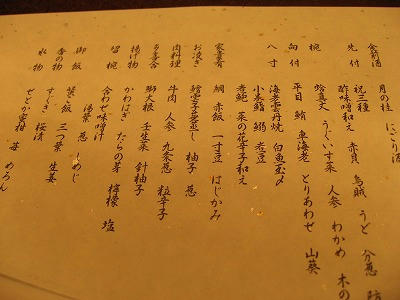 食前酒 月の桂 にごり酒
先付 祝三種
酢味噌和え 赤貝 烏賊 うど 分葱 防
椀 蛤真丈 うぐいす菜 人参 わかめ 木の
向付 平目 鮪 車海老 とりあわせ 山葵
八寸 海老雲丹焼 白魚玉〆
小木鮨 鰯 煮豆
煮鮑 菜の花辛子和え
家喜肴 鯛 赤飯 一寸豆 はじかみ
お凌ぎ 鱠雲子蕎麦蒸し 柚子 葱
肉料理 牛肉 人参 九条葱 粒辛子
多喜合 鰤大根 壬生菜 針柚子
揚げ物 かわはぎ たらの芽 檸檬 塩
留椀 合わせ味噌汁
湯葉 葱 しめじ
御飯 筍ご飯 三つ葉 生姜
香の物 すぐき 桜漬
水物 せとか蜜柑 苺 めろん